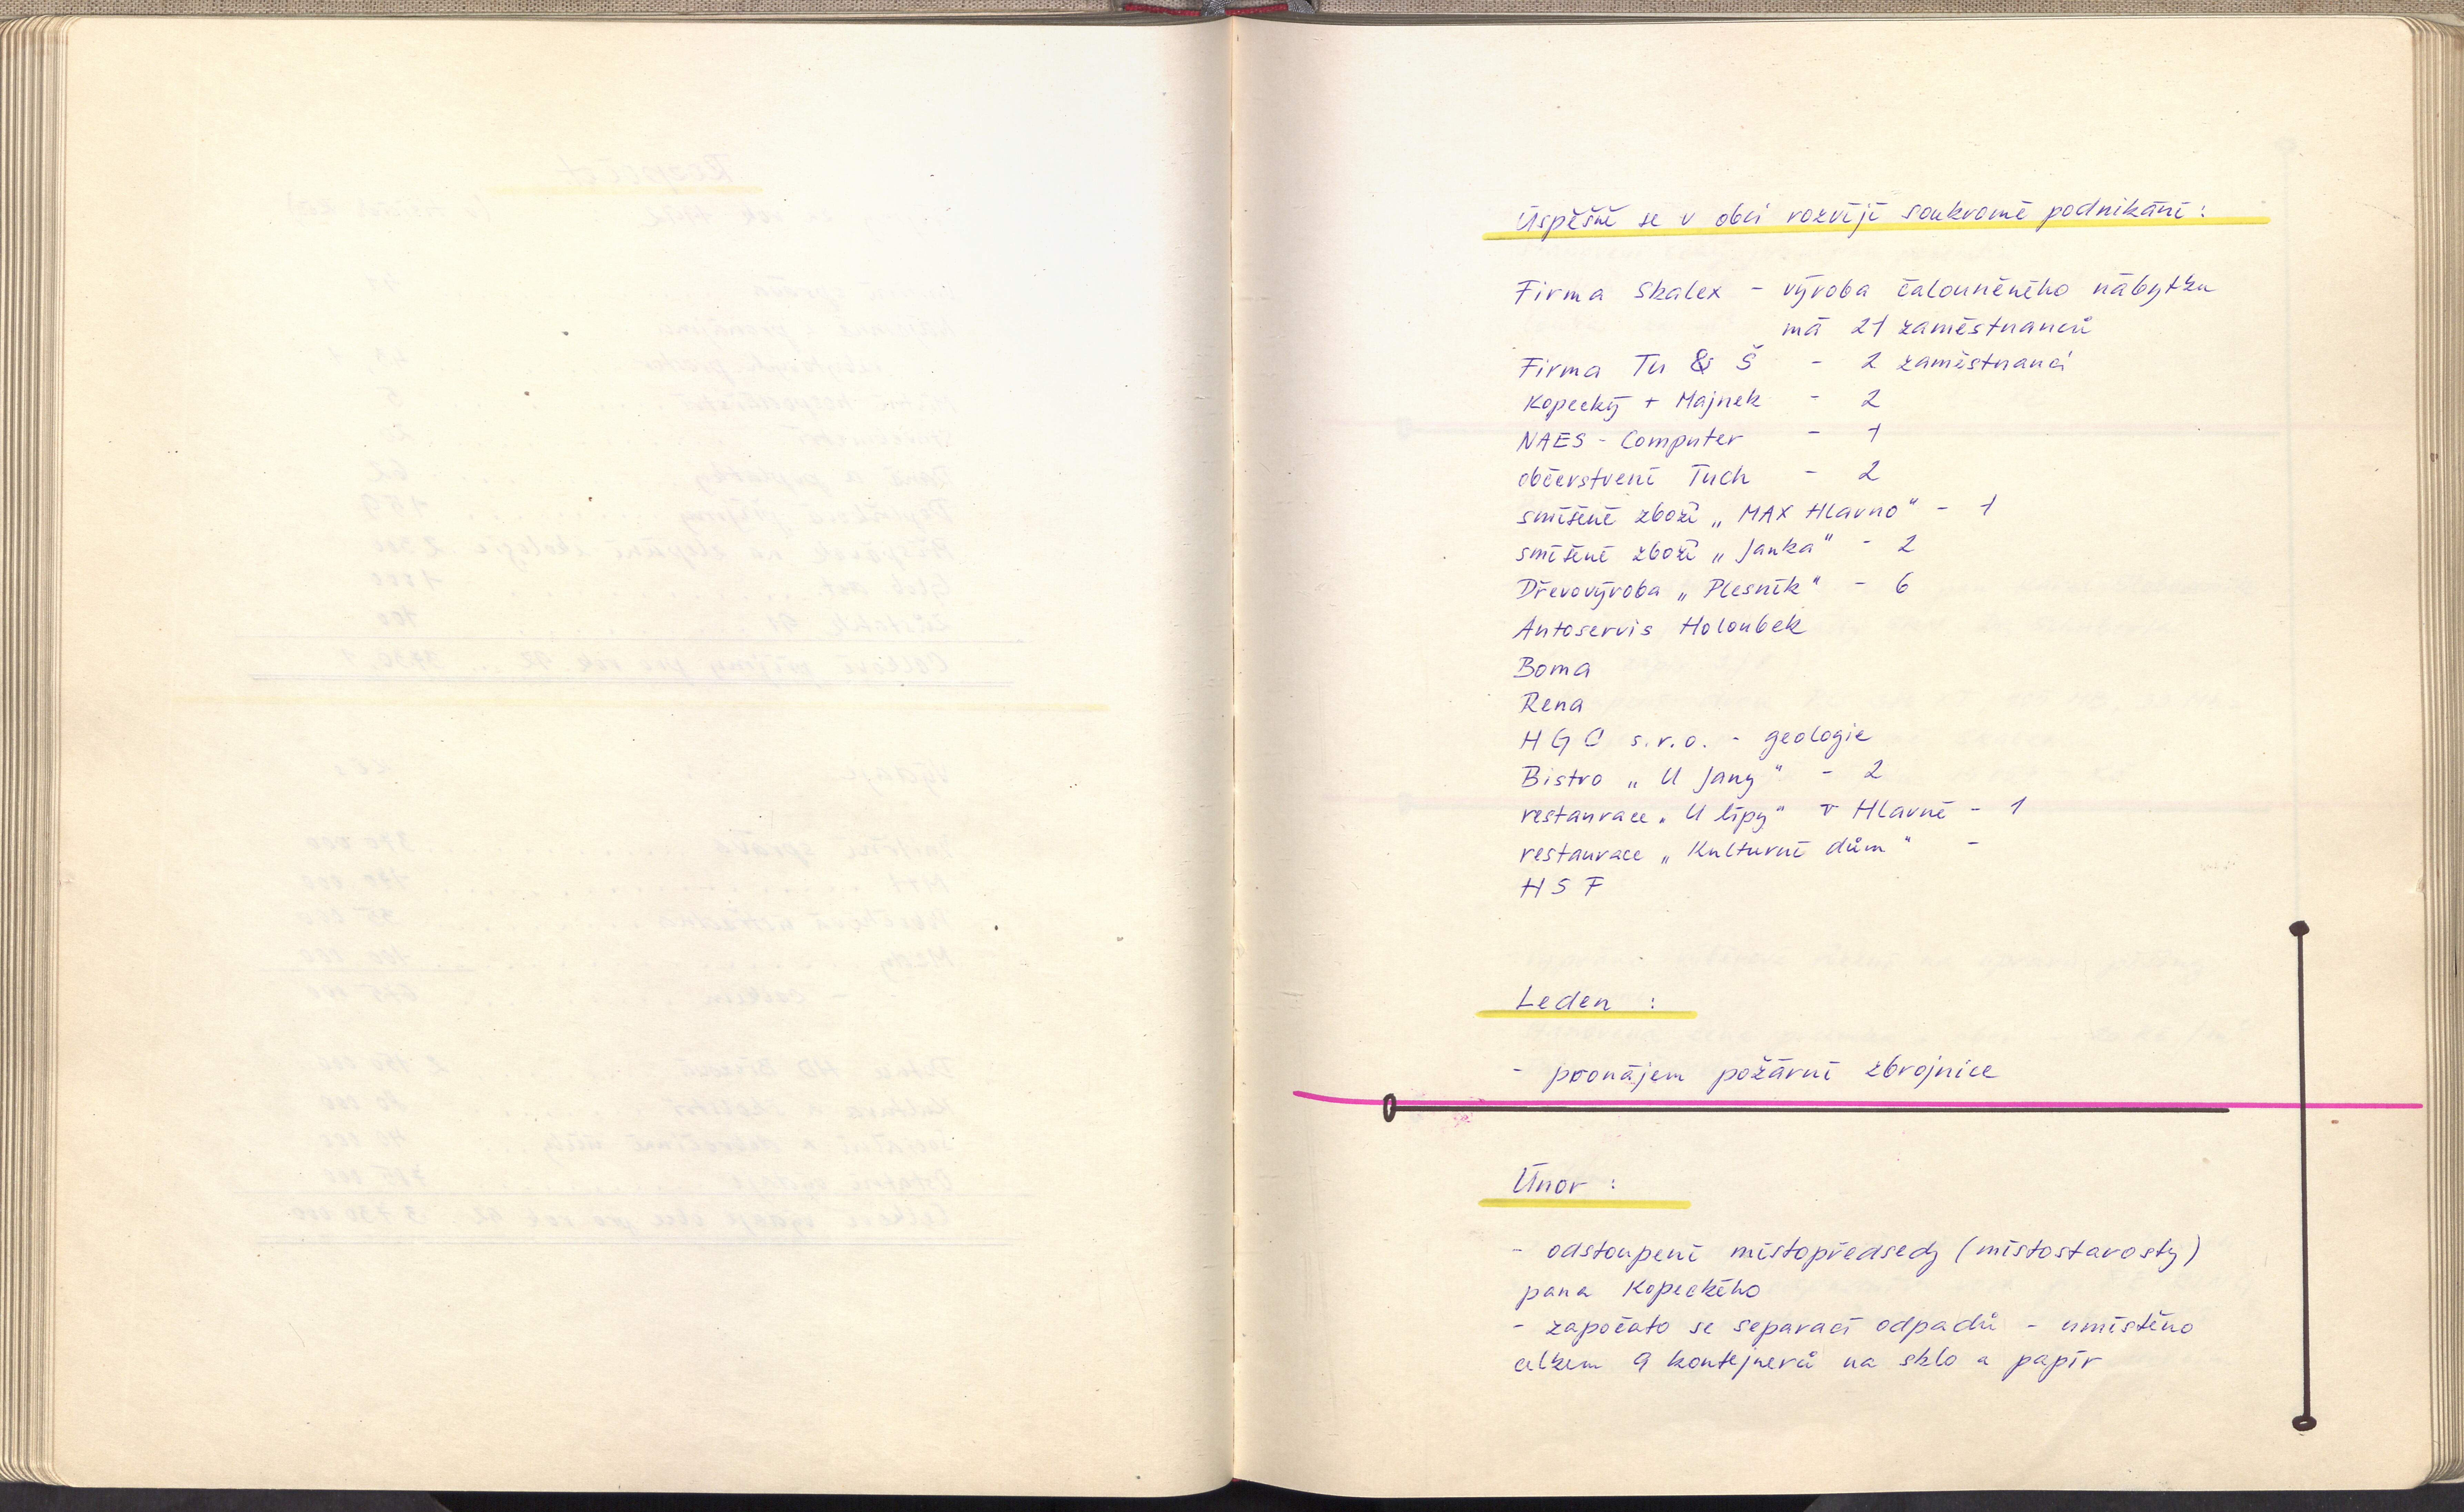 Úspěšně se v obci rozvíjí soukromé podnikání:
Firma Skalex - výroba čalouněného nábytku
má 21 zaměstnanců
Firma Tu & Š - 2 zaměstnanci
Kopecký + Majnek - 2
NAES - Computer - 1
občerstvení Tuch - 2
smíšené zboží „MAX Hlavno" - 1
smíšené zboží „Janka" - 2
Dřevovýroba „Plesník" - 6
Autoservis Holoubek
Boma
Rena
HGC s.r.o. - geologie
Bistro „U Jany" - 2
restaurace „U lípy" v Hlavně - 1
restaurace „Kulturní dům" -
HSF
Leden :
- pronájem požární zbrojnice
Únor :
- odstoupení místopředsedy (místostarosty)
pana Kopeckého
- započato se separací odpadů - umístěno
celkem 9 kontejnerů na sklo a papír